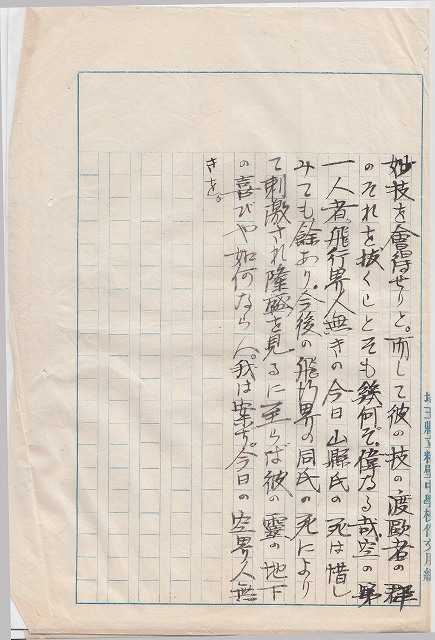 妙技を會得せりと。而して彼の技の渡歐者の群
のそれを抜くことそも幾何ぞ。偉なる哉空の第
一人者。飛行界人無きの今日山縣氏の死は惜し
みても餘あり。今後の飛行界の同氏の死により
て刺激され隆盛を見るに至らば彼の靈の地下
の喜びや如何ならん。我は案ず。今日の空界人無
きを。
埼玉縣立粕壁中學校作文用紙